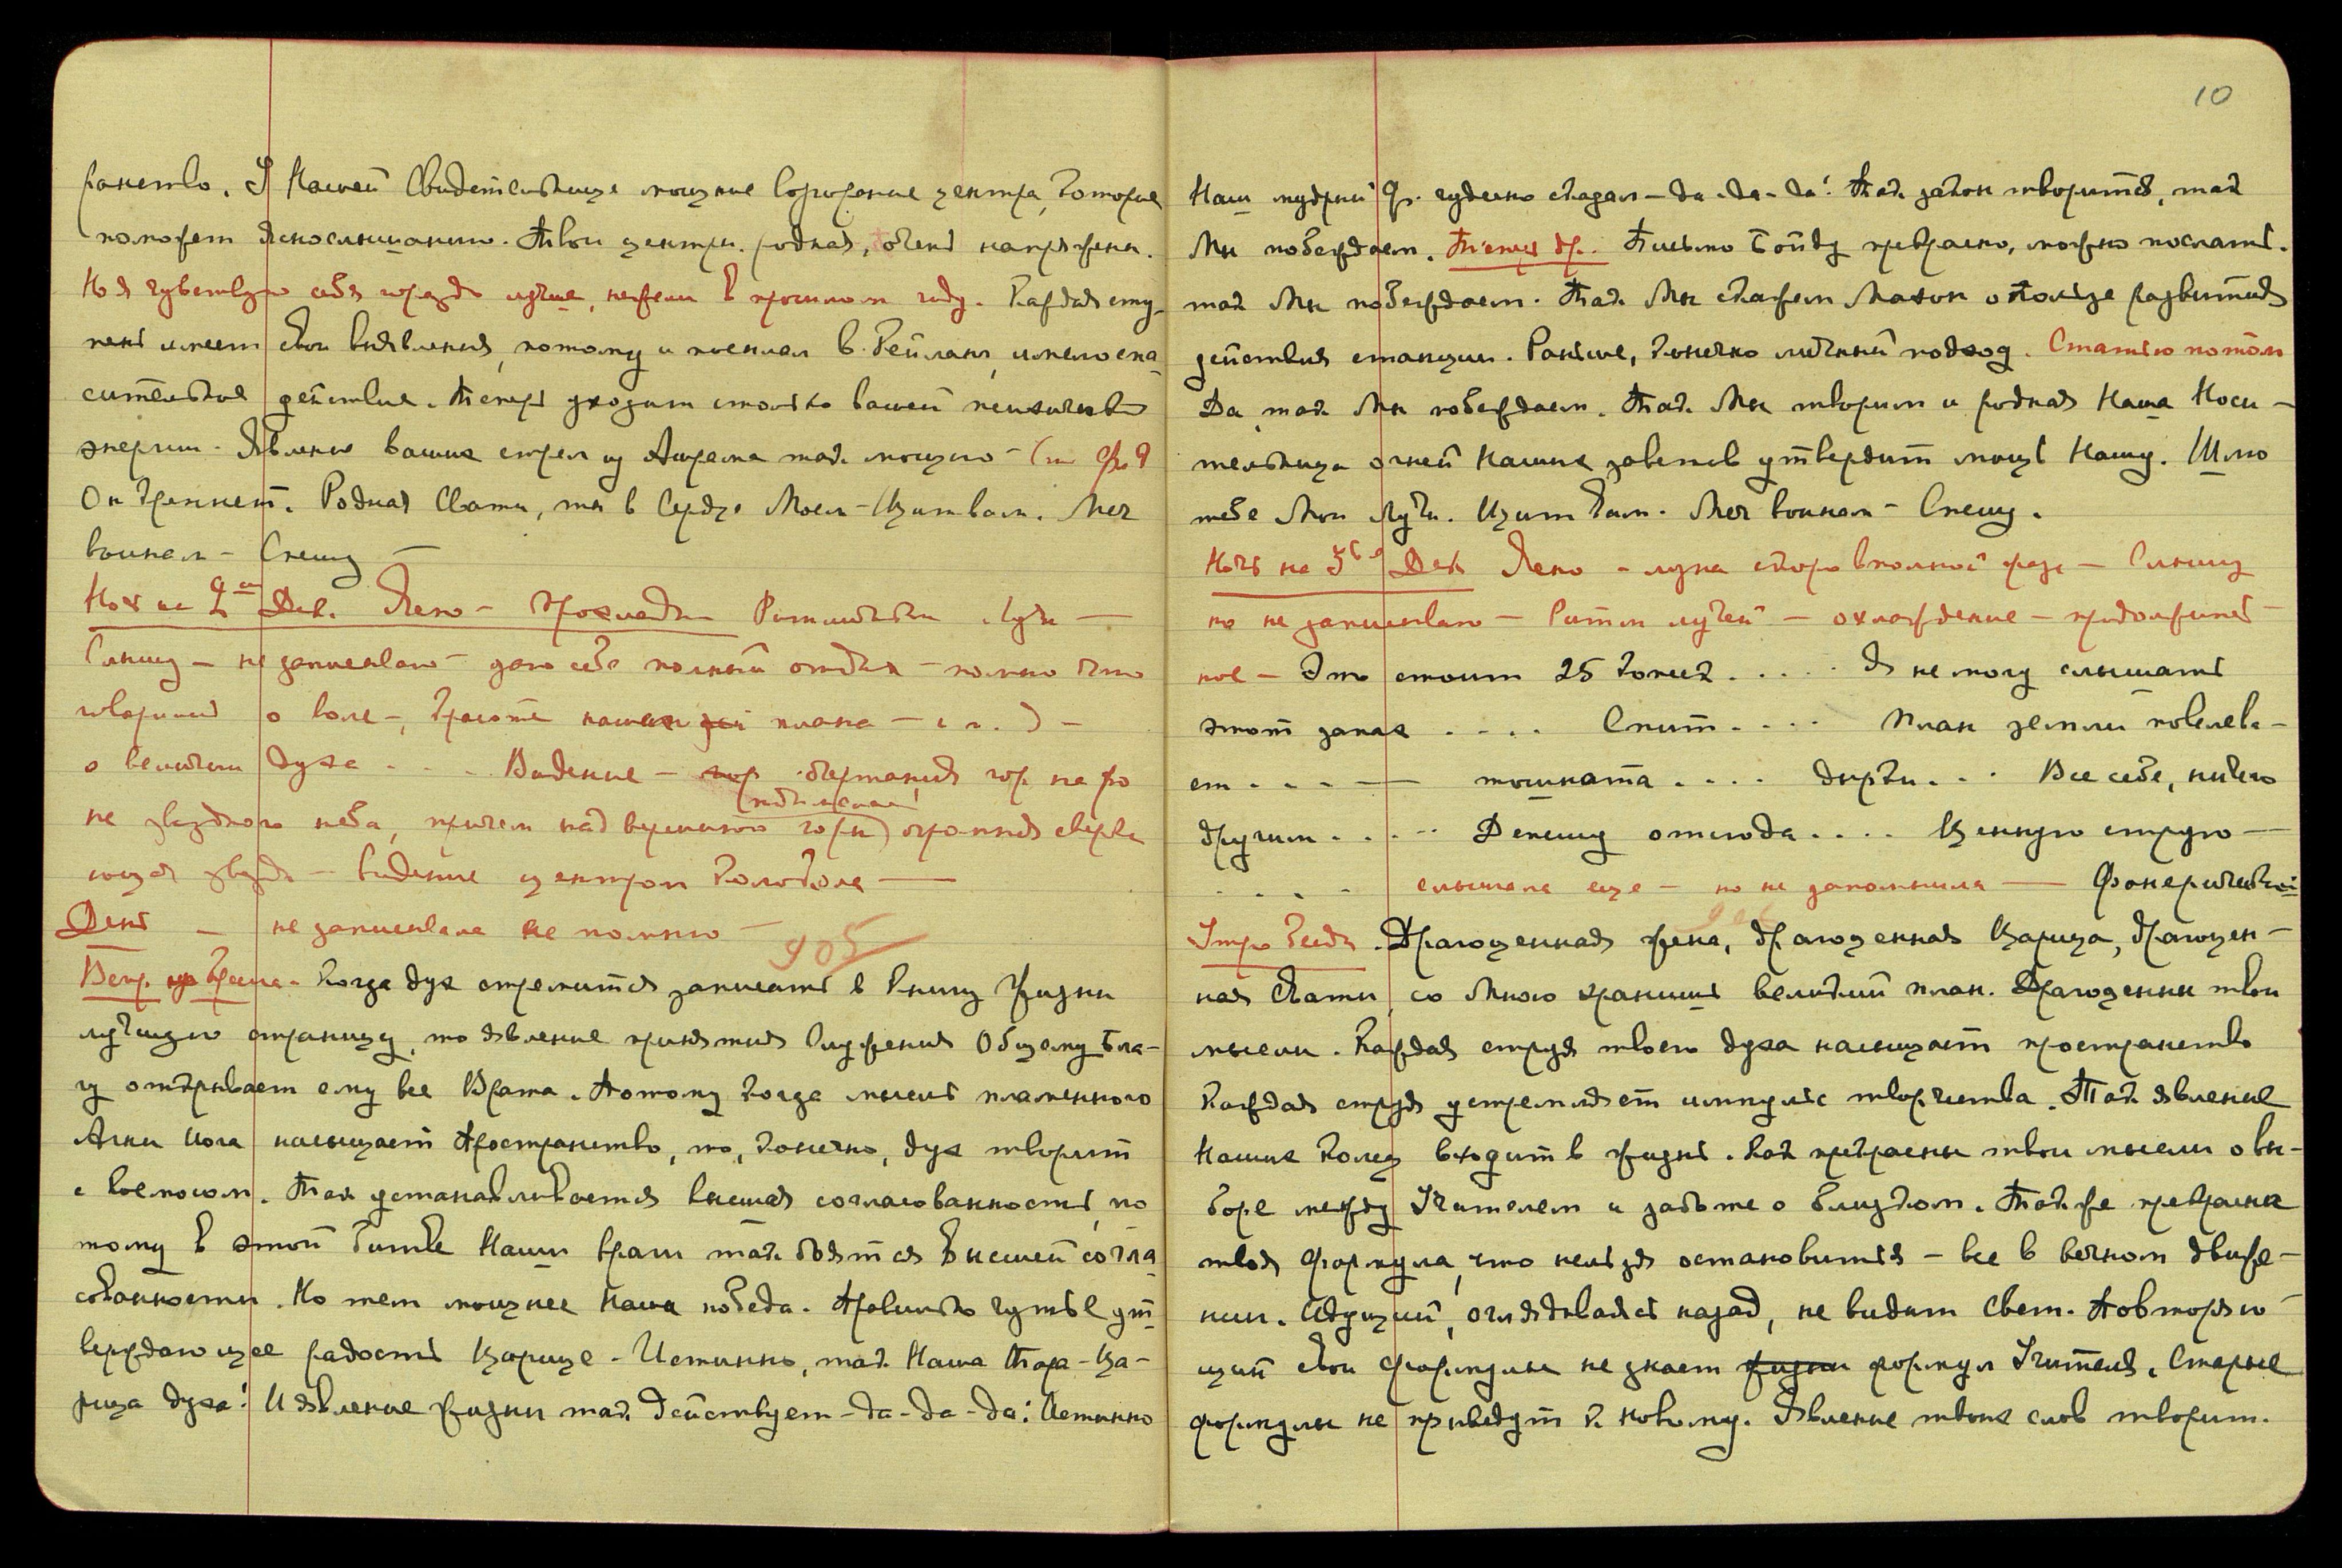 ранство. У Нашей Свидетельнице мощные горорание центра, которые
помогают яснослышанию. Твои центры, родная, очень напряжены.
Но я чувствую себя гораздо лучше, нежели в прошлом году. Каждая сту-
пень имеет свои выявления, потому и поехал в Цейлон, имело спа
сительное действие. Теперь уходит столько вашей психической
энергии. Явление ваших стрел из Ашрама так мощно –
Он крепнет. Родная Свати, ты в Сердце Моем – Щит вам. Меч
воинам – Спешу –
Ночь на 2ое Дек. Ясно – Прохладно Ритмически Лучи –
Слышу – не записываю – даю себе полный отдых – помню что
говорилось о воле –, красоте нашего плана –
о величии духа . . . . Видение – очертания гор на фо
не звездного неба, причем над вершиною горы огромная сверка
ющая звезда – видение центром колокола –
День – не записывала не помню –
905
Вечр. Когда дух стремится записать в Книгу Жизни
лучшую страницу, то явление принятия Служения Общему Бла-
гу открывает ему все Врата. Потому когда мысль пламенного
Агни Йога насыщает Пространство, то, конечно, дух творит
с Космосом. Так устанавливается высшая согласованность, по
тому в этой битве Наши враги так боятся Высшей согла
сованности. Но тем мощнее Наша победа. Правильно чутье ут
верждающее радость Царице. Истинно, так Наша Тара – Ца-
рица духа! И явление жизни так действует – да – да – да! Истинно
10
Наш мудрый Ф. чудесно сказал – да – да – да! Так закон творится, так
Мы побеждаем. Письмо Бойду прекрасно, можно послать.
так Мы побеждаем. Так Мы скажем о пользе развития
действия станции. Раньше, конечно личный подход. Статью потом
Да, так Мы побеждаем. Так Мы творим и родная Наша Носи –
тельница огней Наших заветов утвердит мощь Нашу. Шлю
тебе Мои Лучи. Щит вам. Меч воинам – Спешу.
Ночь на Дек Ясно – луна скоро в полной фазе – Слышу
но не записываю – Ритм лучей – охлаждение – продолжитель –
ное – Это стоит 25 копеек . . . . Я не могу слышать
этот запах . . . . Спит . . . . План земли повелева –
ет . . . . – тошнота . . . . дырки . . . Все себе, ничего
другим . . . . . Депешу отсюда . . . . Ценную струю –
. . . . слышала еще – но не запомнила – Фонерический
Утро Драгоценная жена, драгоценная Царица, драгоцен –
ная Свати, со Мною хранишь великий план. Драгоценны твои
мысли. Каждая струя твоего духа насыщает пространство
Каждая струя устремляет импульс творчества. Так явление
Наших колец входит в жизнь. Как прекрасны твои мысли о вы-
боре между Учителем и заботе о близком. Также прекрасна
твоя формула, что нельзя остановиться – все в вечном движе –
нии. Идущий, оглядываясь назад, не видит Свет. Повторяю –
щий свои формулы не знает жизни формул Учителя. Старые
формулы не приведут к новому. Явление твоих слов творит.